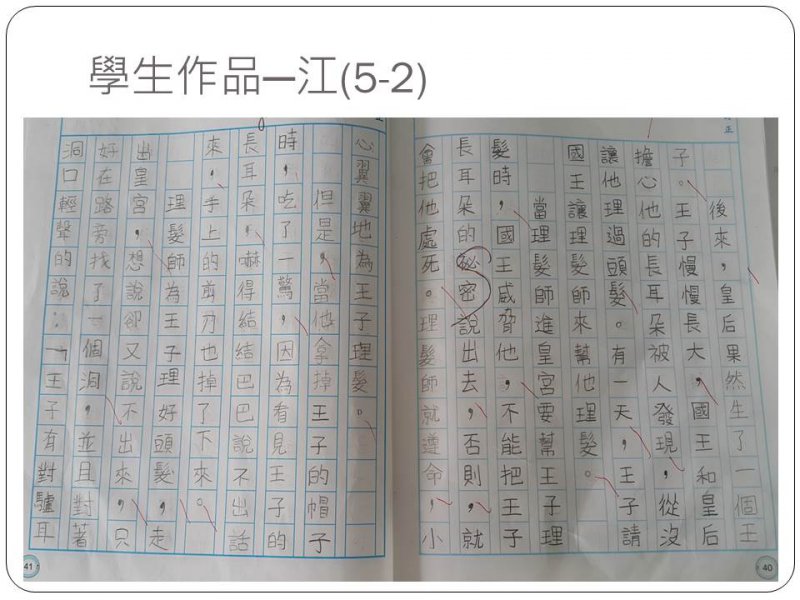 學生作品—江(5-2)
訂正
後來，皇后果然生了一個王
子。王子慢慢長大，國王和皇后
擔心他的長耳朵被人發現，從沒
讓他理過頭髮。有一天，王子請
國王讓理髮師來幫他理髮。
當理髮師進皇宮要幫王子理
髮時，國王威脅他，不能把王子
長耳朵的祕密說出去，否則，就
會把他處死。理髮師就遵命，小
40
正
心翼翼地為王子理髮。
但是，當他拿掉王子的帽子
時，吃了一驚，因為看見王子的
長耳朵，嚇得結結巴巴說不出話
來，手上的剪刀也掉了下來。
理髮師為王子理好頭髮，走
出皇宮，想說卻又說不出來，只
好在路旁找了一個洞，並且對著
洞口輕聲的說：「王子有對驢耳
41